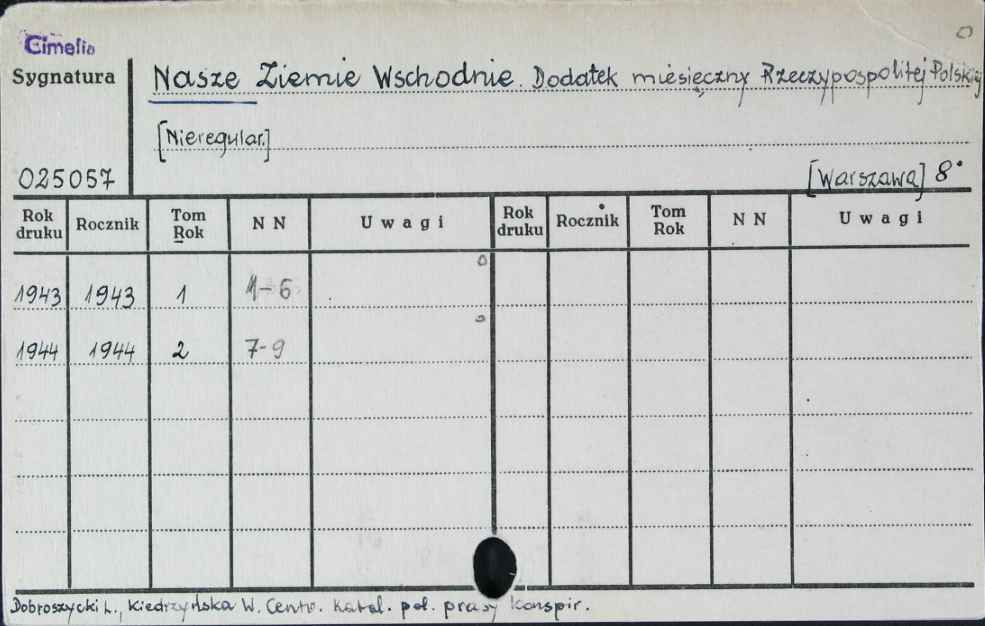 Cimelia
Sygnatura
Nasze Ziemie Wschodnie. Dodatek miesięczny Rzeczypospolitej Polskiej
[Nieregular.]
025057
[Warszawa] 8°
Rok druku Rocznik Tom Rok N N Uwagi Rok druku Rocznik Tom Rok N N Uwagi
1943 1943 1 1-6
1944 1944 2 7-9
Dobroszycki L., Kiedrzyńska W. Centr. Katal. pol. prasy konspir.